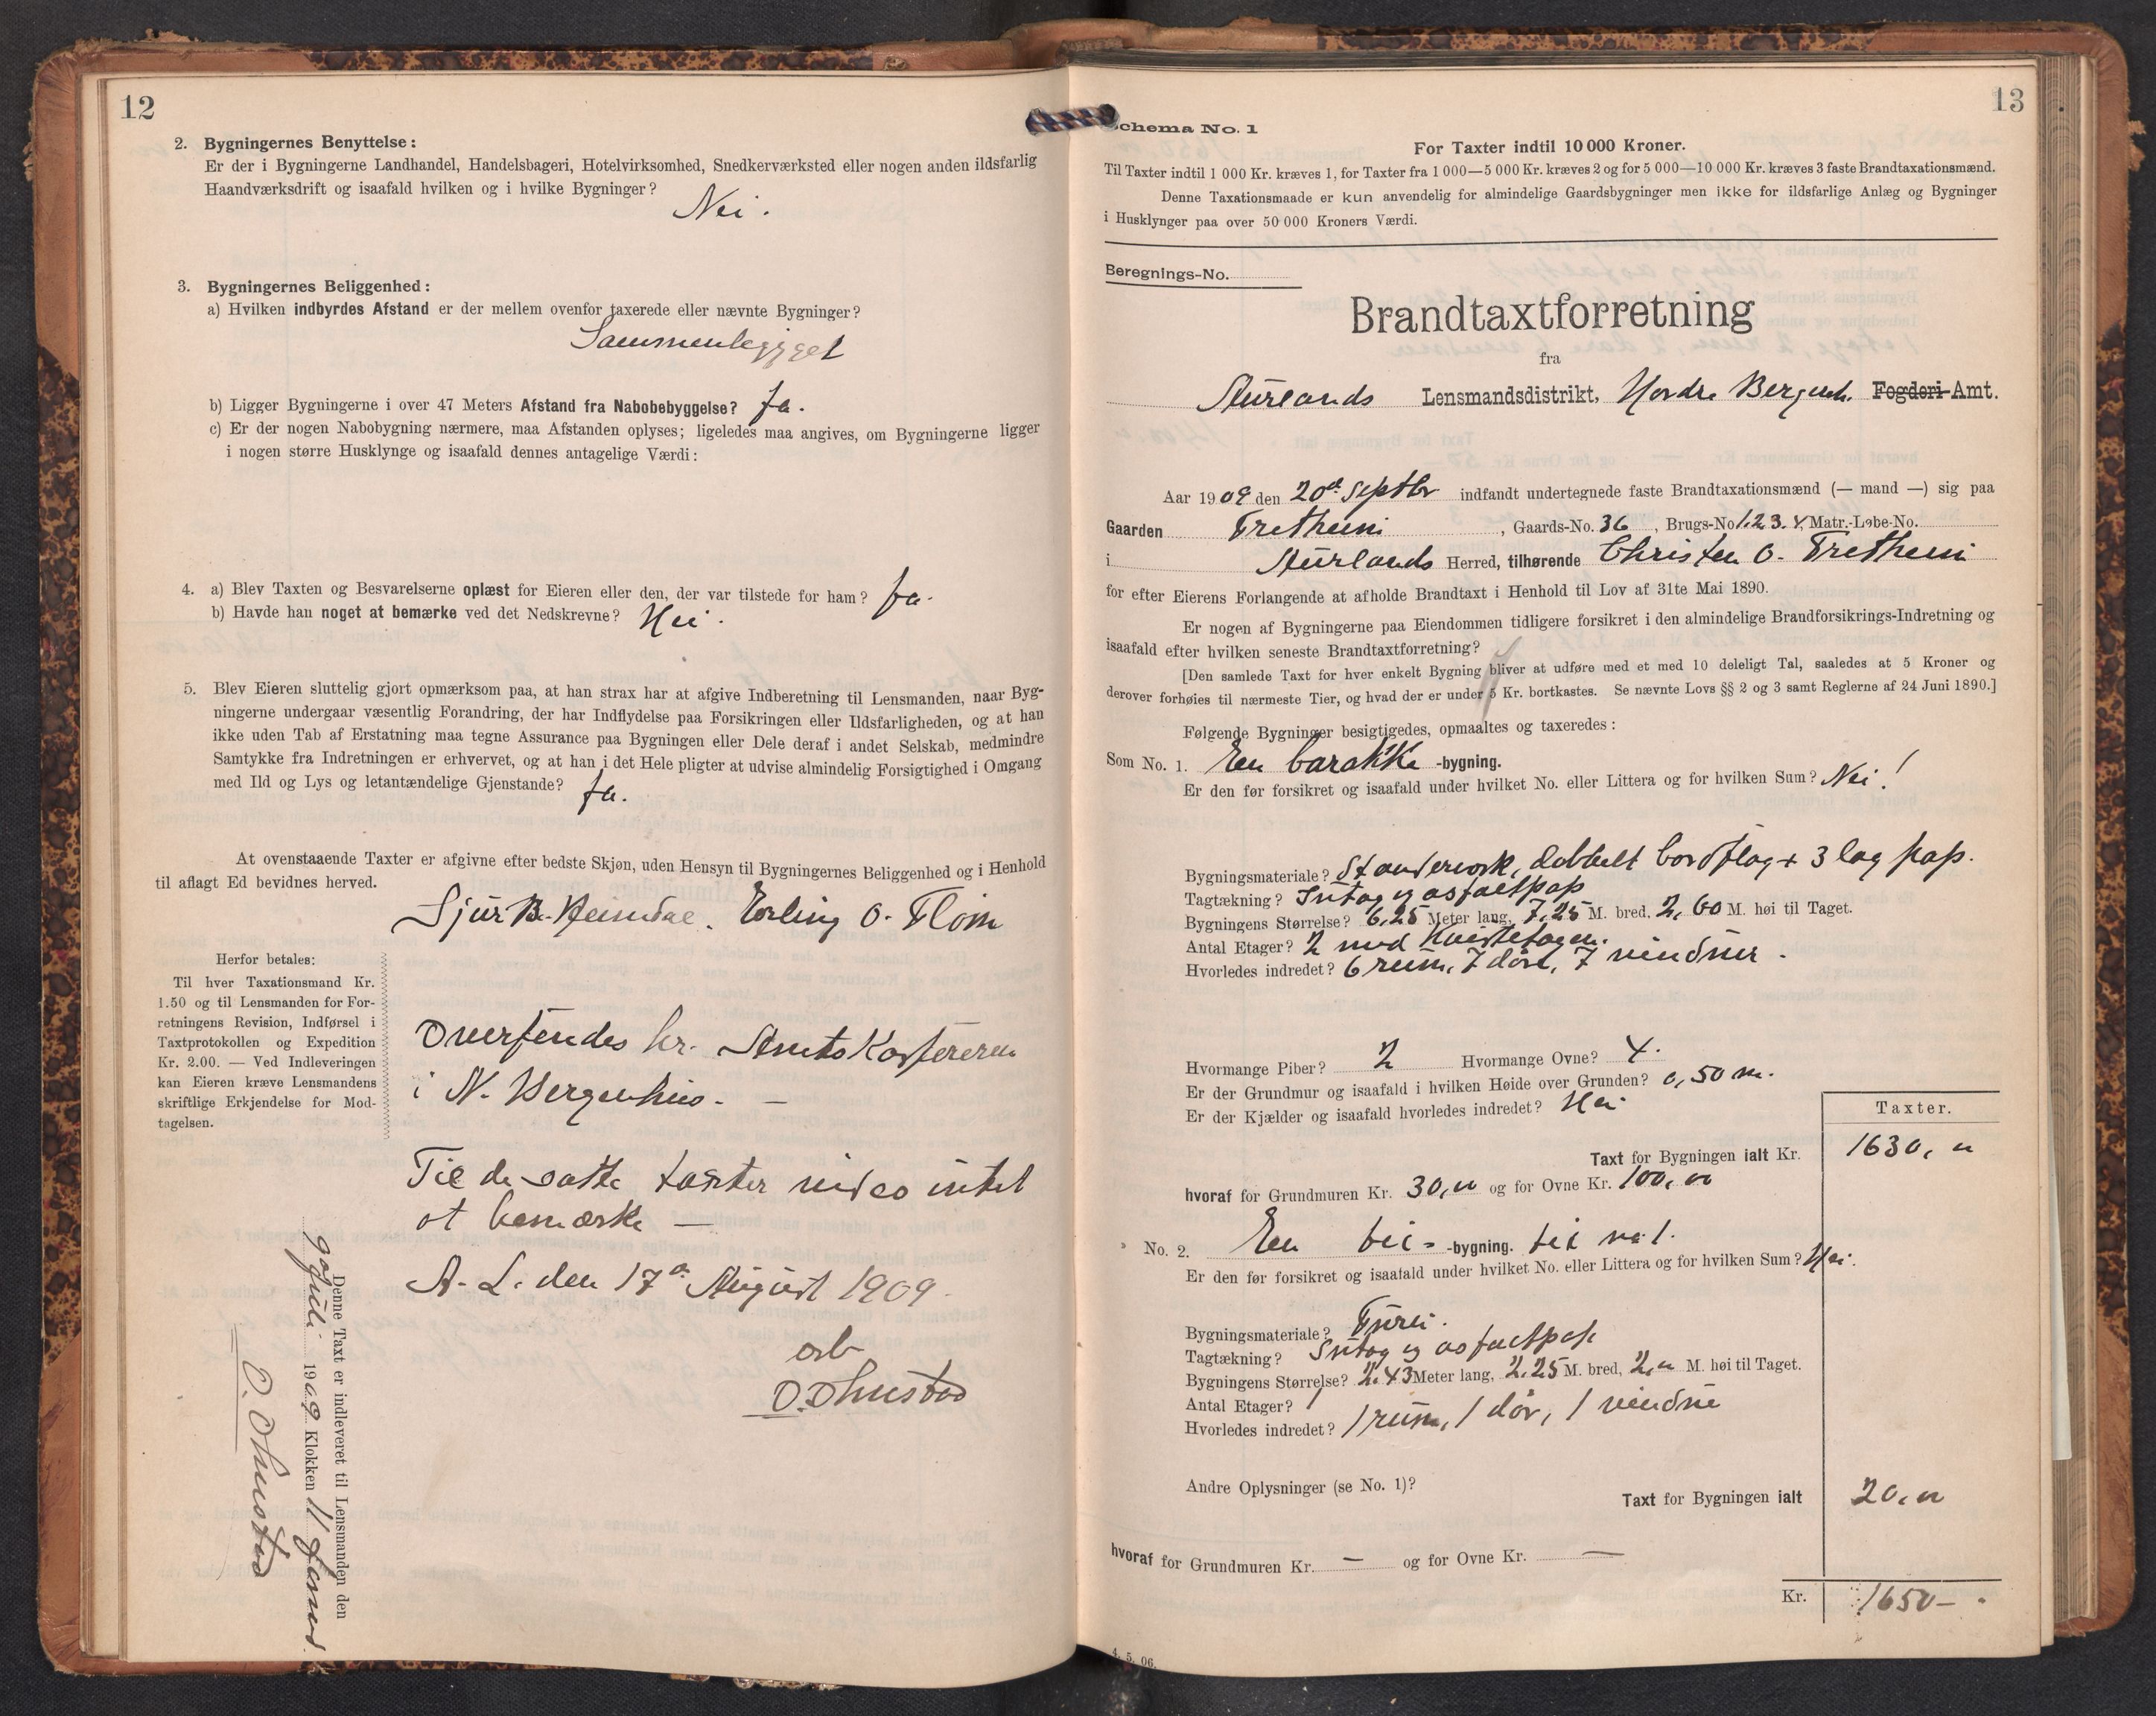 12
2. Bygningernes Benyttelse:
Er der i Bygningerne Landhandel, Handelsbageri, Hotelvirksomhed, Snedkerværksted eller nogen anden ildsfarlig
Haandværksdrift og isaafald hvilken og i hvilke Bygninger?
Nei.
3. Bygningernes Beliggenhed:
a) Hvilken indbyrdes Afstand er der mellem ovenfor taxerede eller nævnte Bygninger?
Sammenbygget
b) Ligger Bygningerne i over 47 Meters Afstand fra Nabobebyggelse? Ja.
c) Er der nogen Nabobygning nærmere, maa Afstanden oplyses; ligeledes maa angives, om Bygningerne ligger
i nogen større Husklynge og isaafald dennes antagelige Værdi:
4. a) Blev Taxten og Besvarelserne oplæst for Eieren eller den, der var tilstede for ham? Ja.
b) Havde han noget at bemærke ved det Nedskrevne? Nei.
5. Blev Eieren sluttelig gjort opmærksom paa, at han strax har at afgive Indberetning til Lensmanden, naar Byg-
ningerne undergaar væsentlig Forandring, der har Indflydelse paa Forsikringen eller Ildsfarligheden, og at han
ikke uden Tab af Erstatning maa tegne Assurance paa Bygningen eller Dele deraf i andet Selskab, medmindre
Samtykke fra Indretningen er erhvervet, og at han i det Hele pligter at udvise almindelig Forsigtighed i Omgang
med Ild og Lys og letantændelige Gjenstande? Ja.
At ovenstaaende Taxter er afgivne efter bedste Skjøn, uden Hensyn til Bygningernes Beliggenhed og i Henhold
til aflagt Ed bevidnes herved.
Sjur B. Heimdal. Erling O. Flom
Herfor betales:
Til hver Taxationsmand Kr.
1.50 og til Lensmanden for For-
retningens Revision, Indførsel i
Taxtprotokollen og Expedition
Kr. 2.00. — Ved Indleveringen
kan Eieren kræve Lensmandens
skriftlige Erkjendelse for Mod-
tagelsen.
Oversendes hr. Amtskassereren
i N. Bergenhus. —
Til de satte taxter vides intet
at bemærke —
A. L. den 17de August 1909.
arb
O. Ohnstad
Denne Taxt er indleveret til Lensmanden den
9 Juli 1909 Klokken 11 formd.
O. Ohnstad
13
Schema No. 1
For Taxter indtil 10 000 Kroner.
Til Taxter indtil 1 000 Kr. kræves 1, for Taxter fra 1 000—5 000 Kr. kræves 2 og for 5 000—10 000 Kr. kræves 3 faste Brandtaxationsmænd.
Denne Taxationsmaade er kun anvendelig for almindelige Gaardsbygninger men ikke for ildsfarlige Anlæg og Bygninger
i Husklynger paa over 50 000 Kroners Værdi.
Beregnings-No.
Brandtaxtforretning
fra
Aurlands Lensmandsdistrikt, Nordre Bergenh. Fogderi Amt.
Aar 1909 den 20de Septbr indfandt undertegnede faste Brandtaxationsmænd (— mand —) sig paa
Gaarden Fretheim, Gaards-No. 36, Brugs-No 1.2.3.4, Matr.-Løbe-No.
i Aurlands Herred, tilhørende Christen O. Fretheim
for efter Eierens Forlangende at afholde Brandtaxt i Henhold til Lov af 31te Mai 1890.
Er nogen af Bygningerne paa Eiendommen tidligere forsikret i den almindelige Brandforsikrings-Indretning og
isaafald efter hvilken seneste Brandtaxtforretning?
[Den samlede Taxt for hver enkelt Bygning bliver at udføre med et med 10 deleligt Tal, saaledes at 5 Kroner og
derover forhøies til nærmeste Tier, og hvad der er under 5 Kr. bortkastes. Se nævnte Lovs §§ 2 og 3 samt Reglerne af 24 Juni 1890.]
Følgende Bygninger besigtigedes, opmaaltes og taxeredes:
Som No. 1. En barakke -bygning.
Er den før forsikret og isaafald under hvilket No. eller Littera og for hvilken Sum? Nei!
Bygningsmateriale? Standerverk, dobbelt bordflag + 3 lag pap.
Tagtækning? Sutag og asfaltpap
Bygningens Størrelse? 6,25 Meter lang, 7,25 M. bred, 2,60 M. høi til Taget.
Antal Etager? 2 med Kvistetagen.
Hvorledes indredet? 6 rum, 7 døre, 7 vinduer.
Hvormange Piber? 2 Hvormange Ovne? 4.
Er der Grundmur og isaafald i hvilken Høide over Grunden? 0,50 m.
Er der Kjælder og isaafald hvorledes indredet? Nei
Taxter.
Taxt for Bygningen ialt Kr. 1630, "
hvoraf for Grundmuren Kr. 30,00 og for Ovne Kr. 100,00
No. 2. En bi- -bygning. til no 1.
Er den før forsikret og isaafald under hvilket No. eller Littera og for hvilken Sum? Nei.
Bygningsmateriale? Furu.
Tagtækning? Sutag og asfaltpap
Bygningens Størrelse? 2.43 Meter lang, 2.25 M. bred, 2," M. høi til Taget.
Antal Etager? 1
Hvorledes indredet? 1 rum, 1 dør, 1 vindue
Andre Oplysninger (se No. 1)?
Taxt for Bygningen ialt 20,00
hvoraf for Grundmuren Kr. — og for Ovne Kr. —
Kr. 1650 —
4. 5. 06.